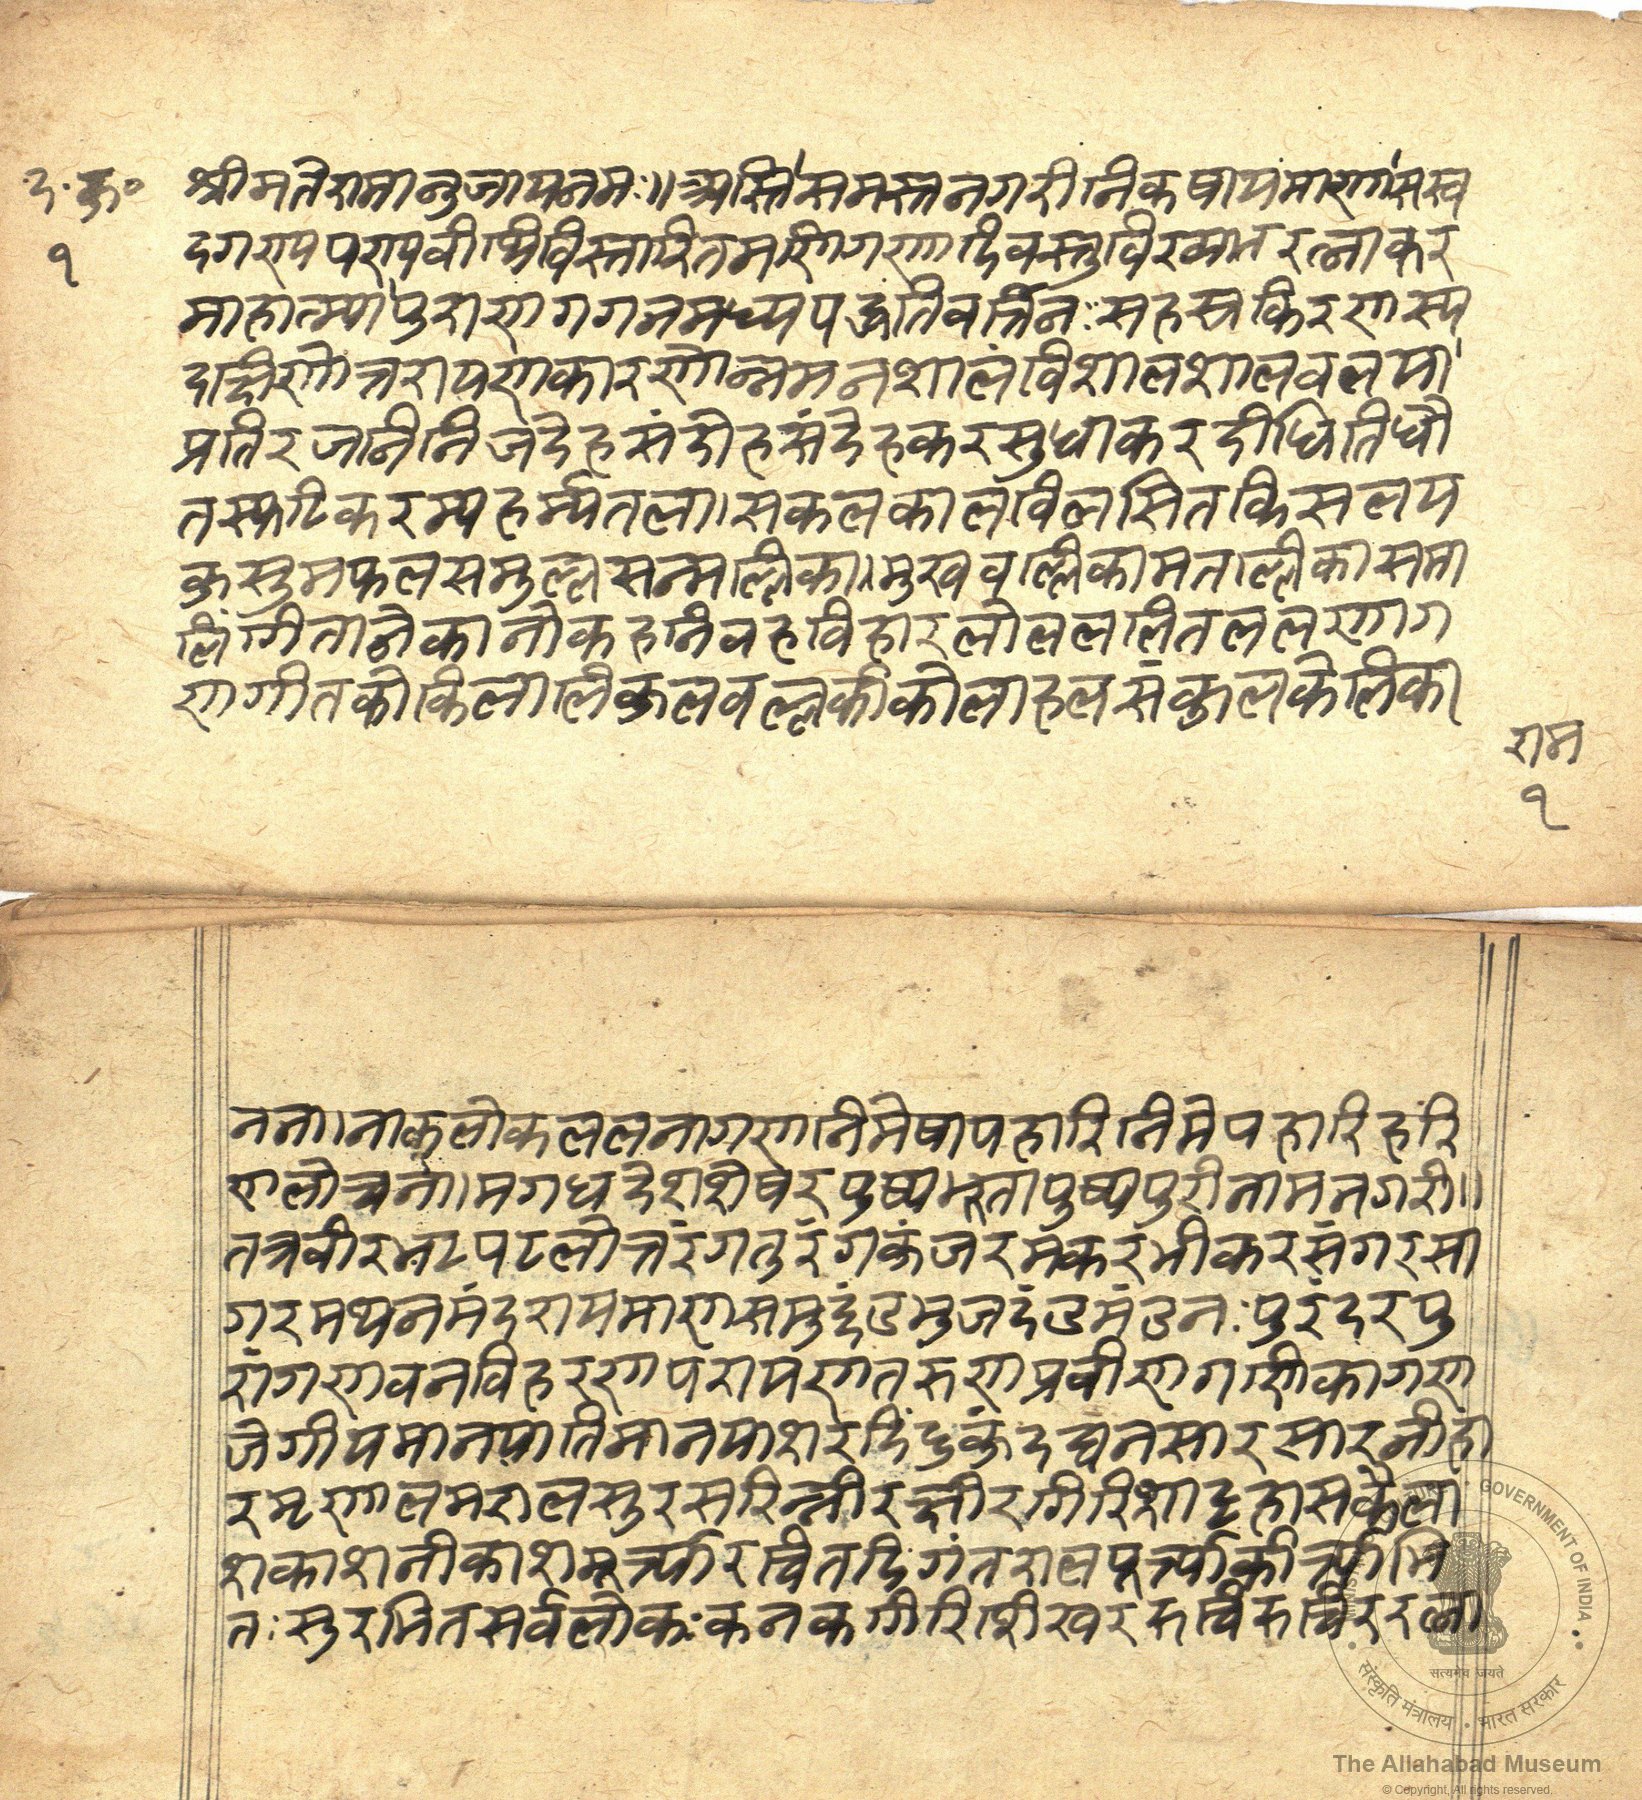 द.कु०
१
श्रीमतेरामानुजायनमः॥अस्तिसमस्तनगरीनिकषायमाणासस्व
दगण्यपण्यवीथिविस्तारितमणिगणादिवस्तुविख्यातरत्नाकर
माहात्म्यापुराणगगनमध्यपद्धतिवर्त्तिनःसहस्रकिरणस्य
दक्षिणोत्तरायणकारणोन्नमनशालंविशालशालवलया
प्रतिरजनीनिजदेहसंदोहसंदेहकरसुधाकरदीधितिधौ
तस्फटिकरम्यहर्म्यतला।सकलकालविलसितकिसलय
कुसुमफलसमुल्लसन्मल्लिका॥मुखवल्लिकामतल्लिकासमा
लिंगितानेकानोकहनिवहविहारलोलललितललणाग
णगीतकोकिलालिकुलवल्लकीकोलाहलसंकुलकेलिका
राम
१
नना।नाकलोकललनागणनिमेषापहारिनिमेपहारिहरि
णलोचना।मगधदेशशेषरपुष्पभूतापुष्पपुरीनामनगरी॥
तत्रवीरभटपटलोत्तरंगतुरंगकुंजरमकरभीकरसंगरसा
गरमथनमंदरायमाणसमुद्दंडभुजदंडमंडनःपुरंदरपु
रांगणवनविहरणपरायणतरुणप्रवीणगणिकागण
जेगीयमानयातिमानयाशरदिंदुकुंदघनसारसारनीहा
रमृणालमरालसुरसरिन्नीरक्षीरगिरिशाट्टहासकैला
शकाशनीकाशमूर्त्यारचितदिगंतरालपूर्त्याकीर्त्याभि
तःसुरभितसर्वलोकःकनकगिरिशिखररुचिरुचिररत्ना
GOVERNMENT OF INDIA
सत्यमेव जयते
संस्कृति मंत्रालय • भारत सरकार
The Allahabad Museum
© Copyright, All rights reserved.